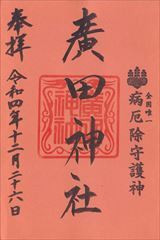 全国唯一
病厄除守護神
廣田神社
奉拝
令和四年十二月二十六日